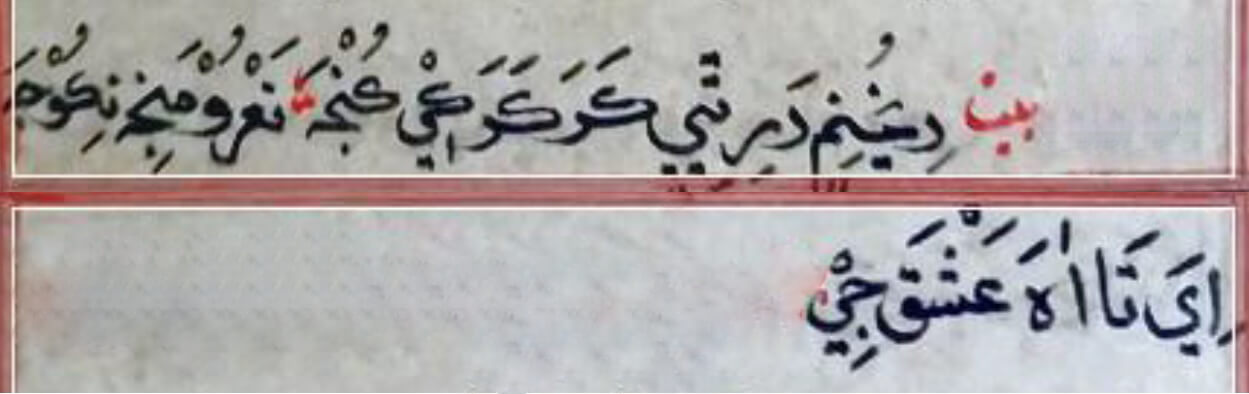 بيت دِيُنِمِ دَرِ تَيِ كَرَ كَرَ كِيْ كُنْجِہَ نَعْرُوْ مَنْجِہِ نِكُوْجِہَ
اِيَ تَا اٰهَ عَشْقَ جِيْ